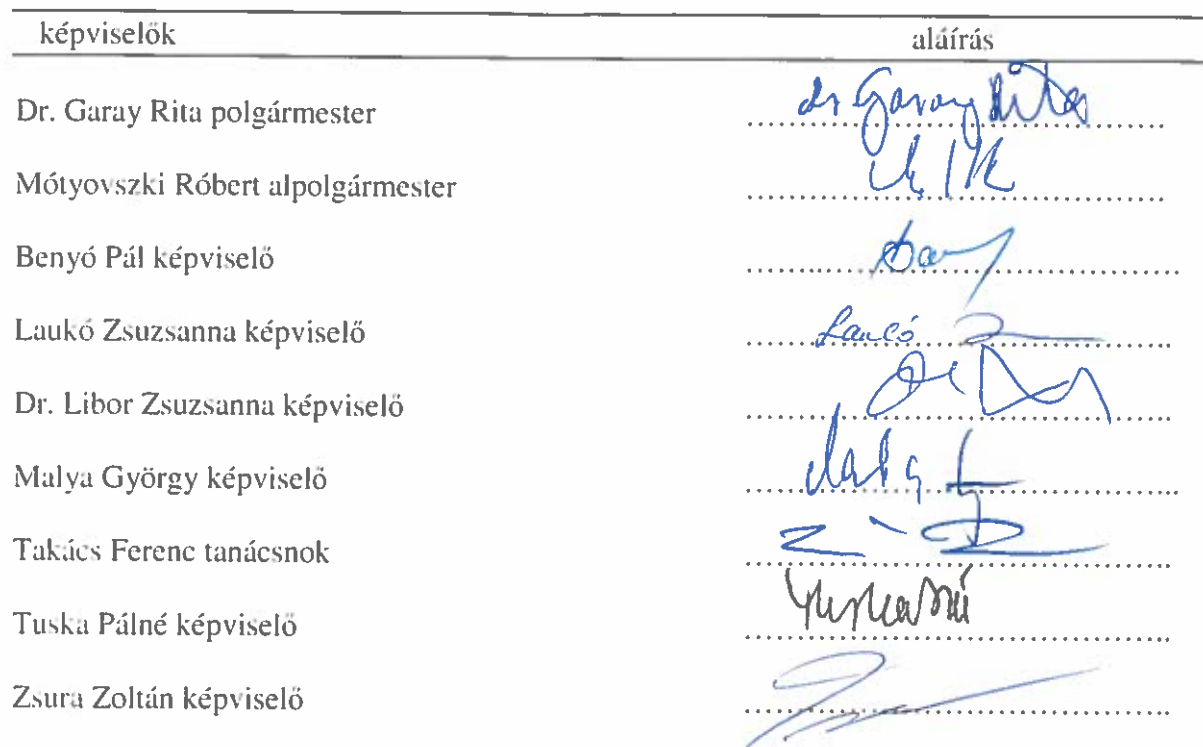 képviselők aláírás
Dr. Garay Rita polgármester dr Garay Rita
Mótyovszki Róbert alpolgármester
Benyó Pál képviselő
Laukó Zsuzsanna képviselő
Dr. Libor Zsuzsanna képviselő
Malya György képviselő
Takács Ferenc tanácsnok
Tuska Pálné képviselő
Zsura Zoltán képviselő